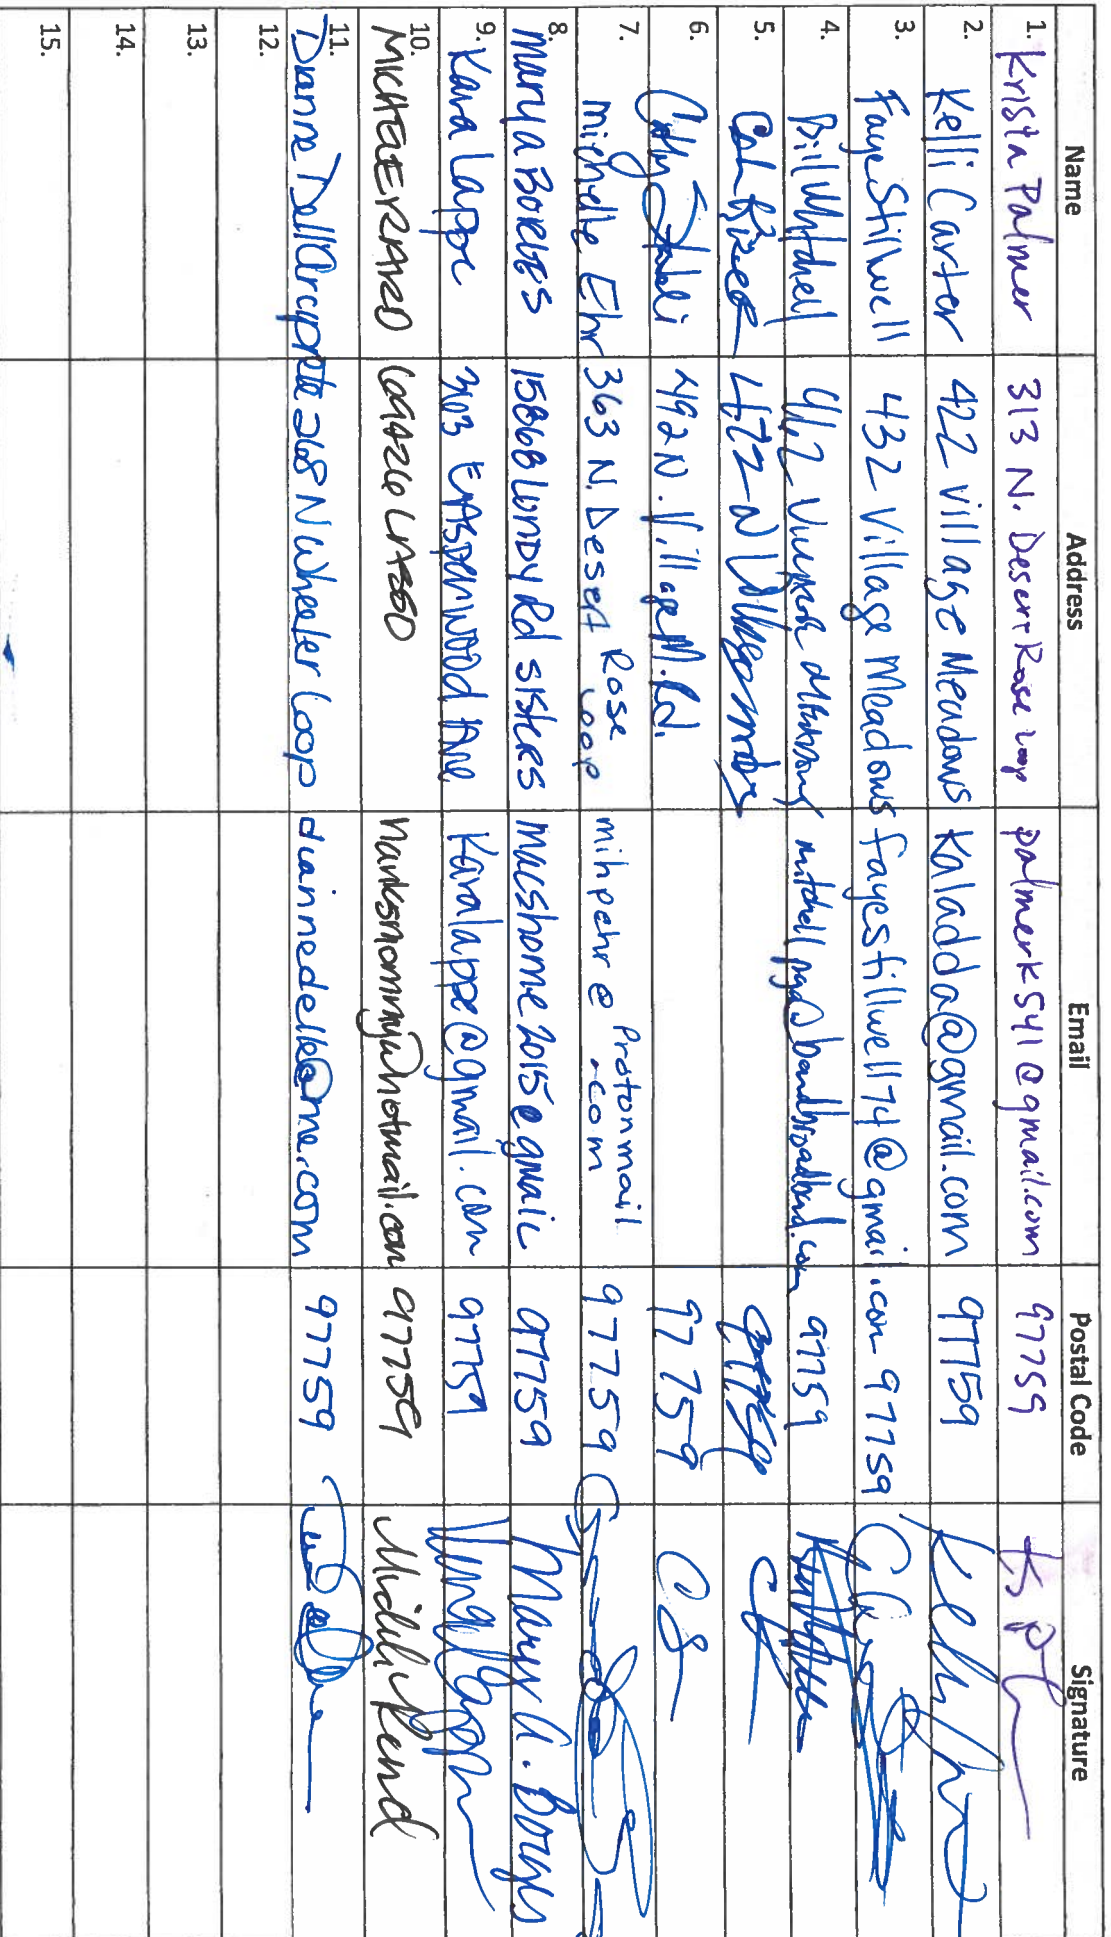 Name Address Email Postal Code Signature
1. Krista Palmer 313 N. Desert Rose Loop palmerk541@gmail.com 97759
2. Kelli Carter 422 Village Meadows Kaladda@gmail.com 97759
3. Faye Stillwell 432 Village Meadows fayestillwell74@gmail.com 97759
4. Bill Mitchell 442 mitchell @bendbroadband.com 97759
5. 472 N 97759
6. 492 N. Village M. Rd. 97759
7. Michelle Ehr 363 N. Desert Rose Loop mihpehr@protonmail.com 97759
8. Marya Borges 15868 Lundy Rd Sisters macshome2015@gmail 97759 Mary A. Borges
9. Kara Lappe 303 E Aspenwood Ave Karalappe@gmail.com 97759
10. hanksmommy@hotmail.com 97759
11. Dianne Dellarciprete 268 N Wheeler Loop diannedell@me.com 97759
12.
13.
14.
15.